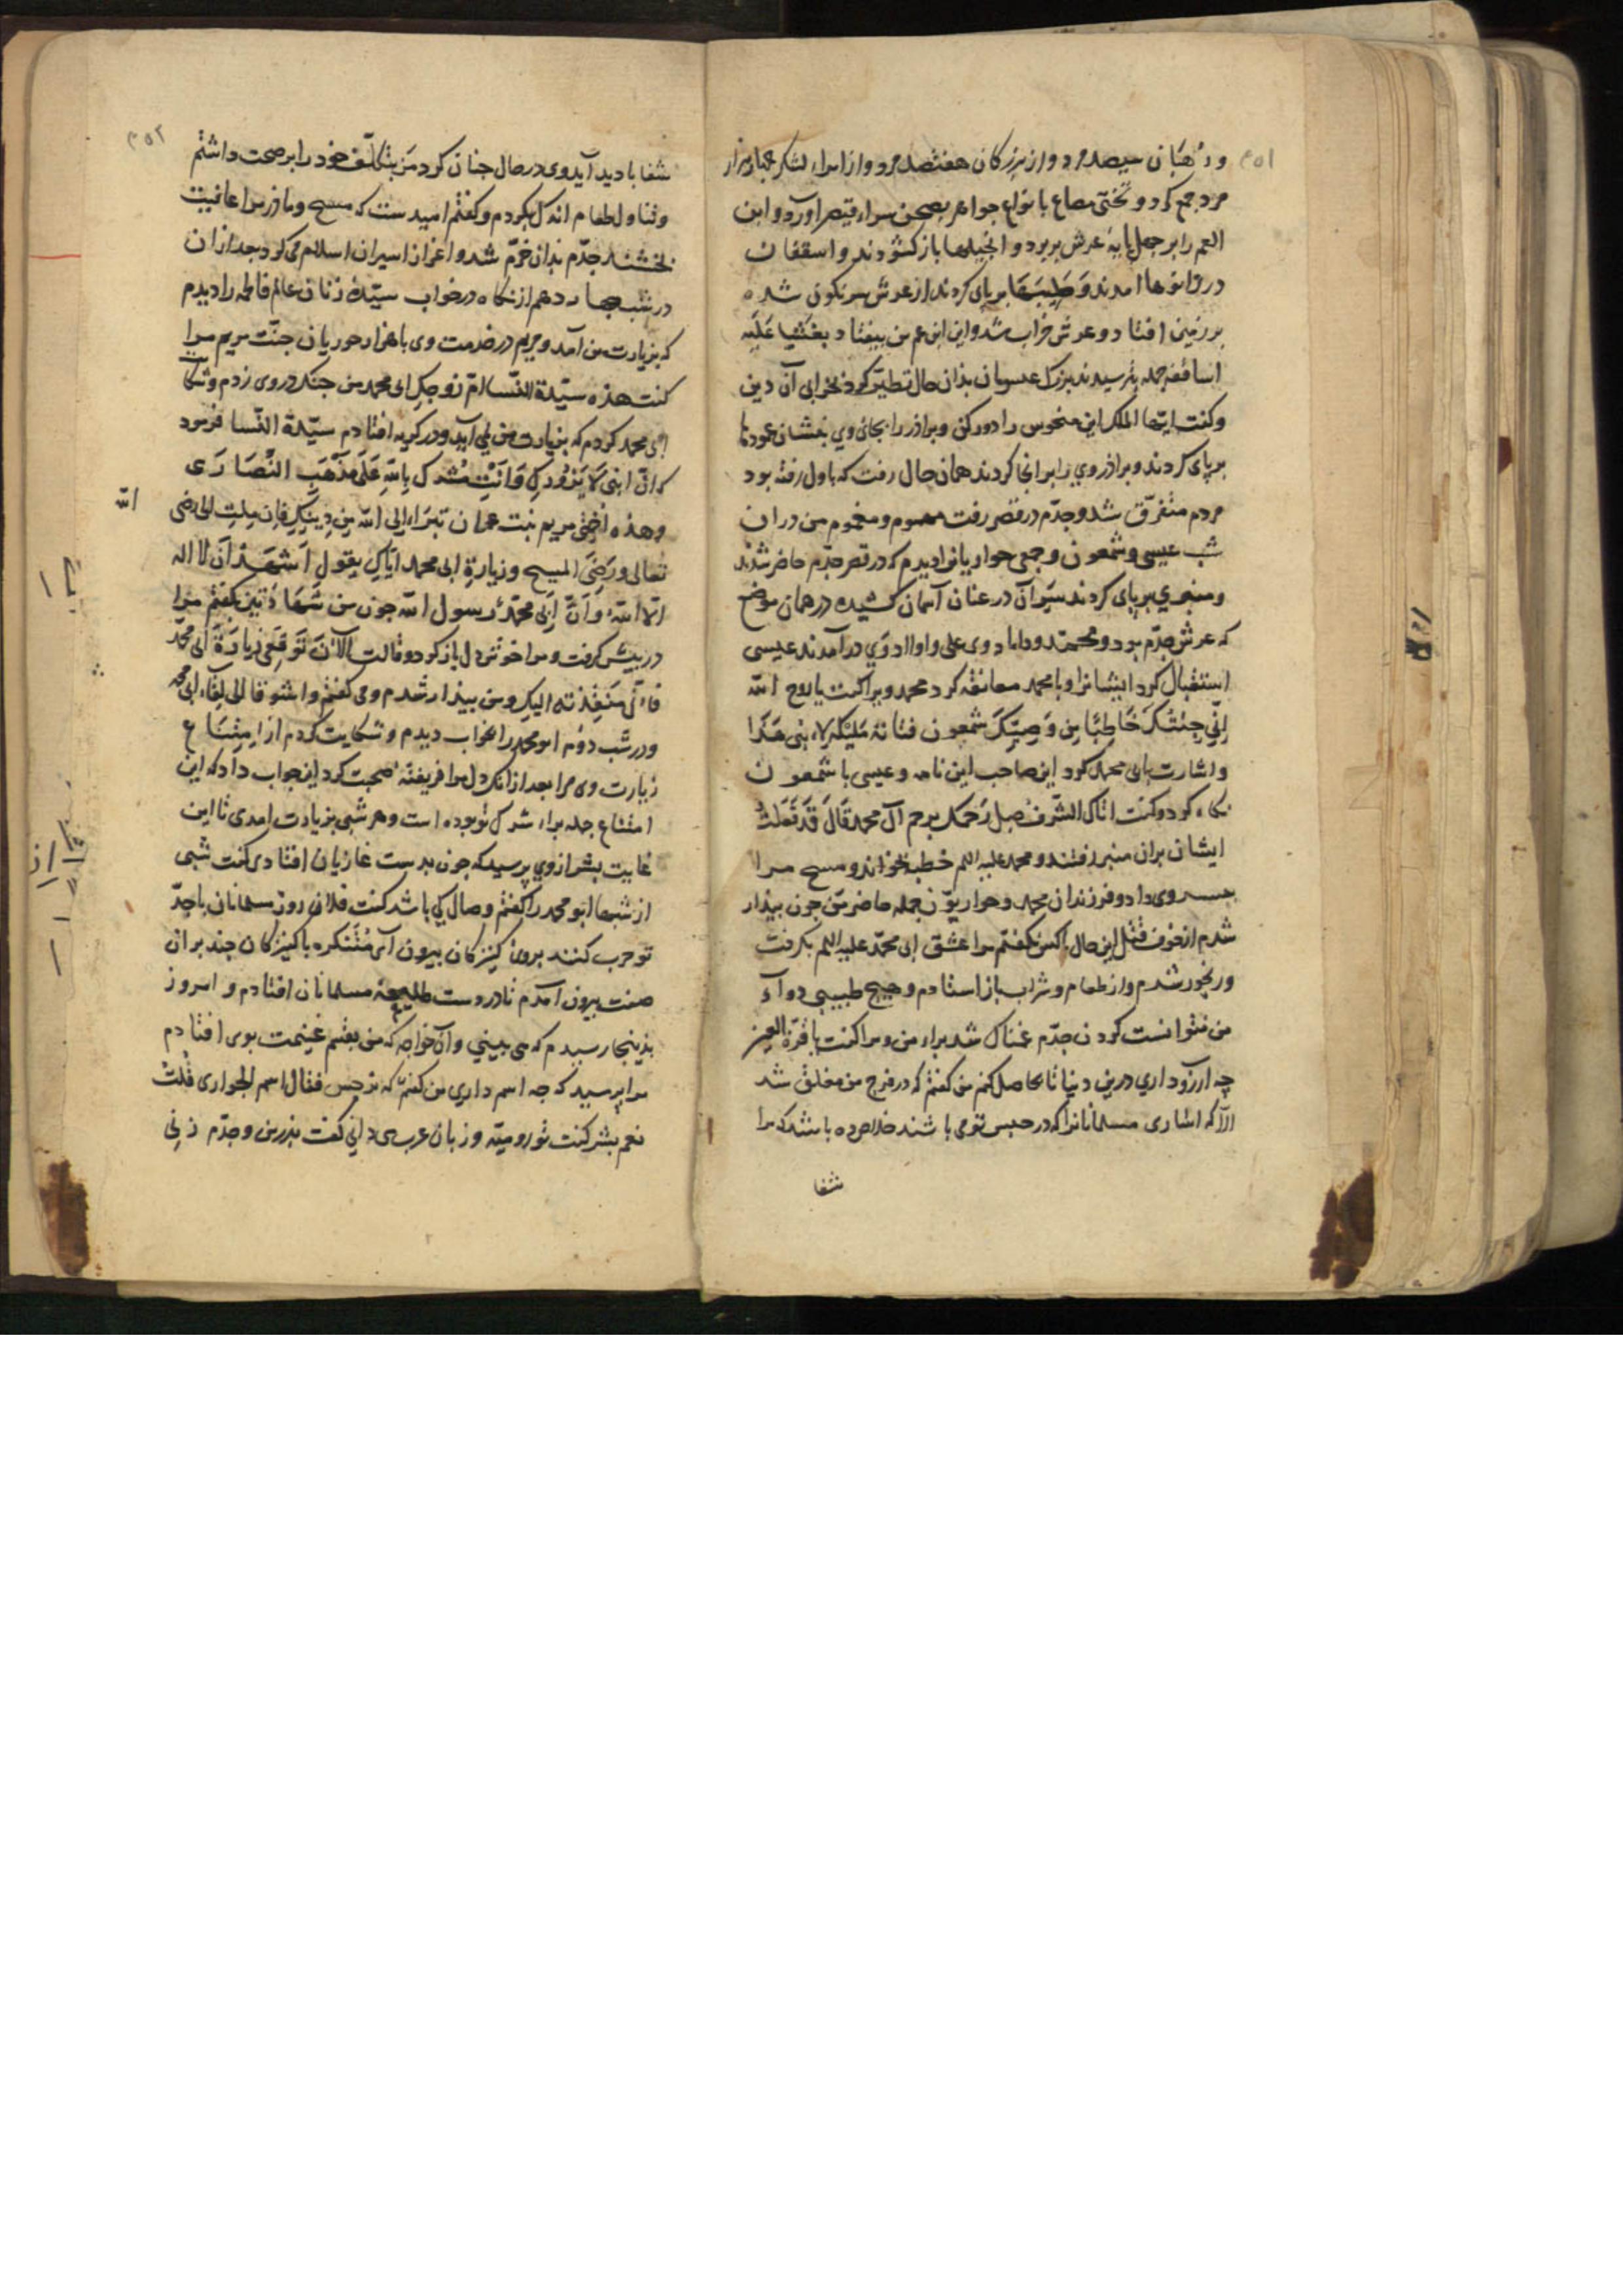 ۳۵۱
و رُهبَان سیصد مرد و از بزرکان هفتصد مرد و از امراء لشکر چهار هزار
مرد جمع کرد و تختی مصاع بانواع جواهر بصحن سراء قیصر اورد و ابن
العم را بر چهل پایهٔ عرش بر برد و انجیلها باز کشودند و اسقفان
در زانوها امدند وَ صَلیبَها بر پای کردند از عرش سرنکون شده
بر زمین افتاد و عرش خراب شد و این ابن عم من بیفتاد بغشیا عَلَیه
اساقفه جمله بترسیدند بزرک عیسویان بذان حال تطیّر کرد بخرابی آن دین
و کفت ایّها الملک این منحوس را دور کن و برادر را بجای وی بنشان عودها
بر پای کردند و براذر وی را بر انجا کردند همان حال رفت که باول رفته بود
مردم متفرّق شد و جدّم در قصر رفت مهموم و مغموم من در ان
شب عیسی و شمعون و جمعی حواریانرا دیدم که در قصر جدّم حاضر شدند
و منبری بر پای کردند سَر آن در عنان آسمان کشیده در همان موضع
که عرش جدّم بود و محمّد و داماد وی علی و اولاد وَی در آمدند عیسی
استقبال کرد ایشانرا و با محمد معانقه کرد محمد ویرا کفت یا روح الله
اِنّی جِئتُکَ خَاطِبًا مِن وَصِیِّکَ شمعون فتاته مَلیکه لابنی هَذَا
و اشارت بابی محمد کرد ابن صاحب این نامه و عیسی با شمعون
نکاه کرد و کفت اتاک الشّرفُ صِل رَحمک برحم آل محمد قَالَ قَد فَعَلتُ
ایشان بران منبر رفتند و محمد علیه السلم خطبه بخواند و مسیح مرا
بوی داد و فرزندان محمد و حواریّون جمله حاضر من چون بیدار
شدم از خوف قتل این حال باکس نکفتم مرا عشق ابی محمّد علیه السلم بکرفت
و رنجور شدم و از طعام و شراب باز استادم و هیچ طبیبی دوآء
من نتوانست کردن جدّم غمناک شد براء من و مرا کفت یا قرّة العین
چه ارزو داری درین دنیا تا حاصل کنم من کفتم که در فرح من مغلق شد
الّا که اسارى مسلمانانرا که در حبس تو می باشند خلاص ده باشد که مرا
شفا
۳۵۲
شفا بادید آید وی در حال چنان کرد من بتکلّف خود را بر صحت داشتم
و تناول طعام اندک بکردم و کفتم امید ست که مسیح و ماذرش مرا عافیت
بخشند جدّم بدان خرّم شد و اعزاز اسیران اسلام می کرد بعد از ان
در شب چهاردهم ازنکاه در خواب سیّدهٔ زنان عالم فاطمه را دیدم
که بزیارت من آمد و مریم در خدمت وی با هزار حوریان جنّت مریم مرا
کفت هذه سیّدة النّسا امّ زوجکِ ابی محمد من چنک در وی زدم و شکایت
ابی محمد کردم که بزیارت من نمی آید و در کریه افتادم سیّدة النّسا فرمود
که انّ ابنی لَا یَزُورکِ وَ اَنتِ مُشرک بِاللهِ عَلَی مَذهَب النَّصَارَی
و هذه اُختی مریم بنت عمران تبرّاء الی الله مِن دِینِکِ فاِن مِلتِ الی رضی الله
تعالی و رِضَی المسیح و زیارةِ ابی محمد ایّاکِ یقول اَشهَدُ اَن لا اله
الّا اللهُ وَ اَنَّ اَبی محمّدٌ رسول الله چون من شَهَادَتین بکفتم مرا
در پیش کرفت و مرا خوش دل باز کرد و قالت الآنَ تَوَقّعی زیارَةَ ابی محمّد
فَاِنّی مُنَفِّذته الیکِ و من بیدار شدم و می کفتم واشوقا الی لِقاء ابی محمد
و در شب دوُم ابو محمد را بخواب دیدم و شکایت کردم از اِمتِنَاع
زیارت وی مرا بعد از انک دل مرا فریفته محبت کرد این جواب داد که این
امتناع جمله براء شرک تو بوده است و هر شبی بزیارت امدی تا این
غایت بشر از وی پرسید که چون بدست غازیان افتادی کفت شبی
از شبها ابو محمد را کفتم وصال کی باشد کفت فلان روز مسلمانان با جدّ
تو حرب کنند بروی کنیزکان بیرون آی مُتَنَکّره با کنیزکان چند بران
صفت بیرون آمدم تا در دست طلیعهٔ مسلمانان افتادم و امروز
بذینجا رسیدم که می بینی و آن خواجه که من بقسم غنیمت بوی افتادم
مرا پرسید که چه اسم داری من کفتم که نرجس فقال اسم الجواری قُلتُ
نعم بشر کفت تو رومیّه و زبان عربی می دانی کفت بذرش و جدّم زنی